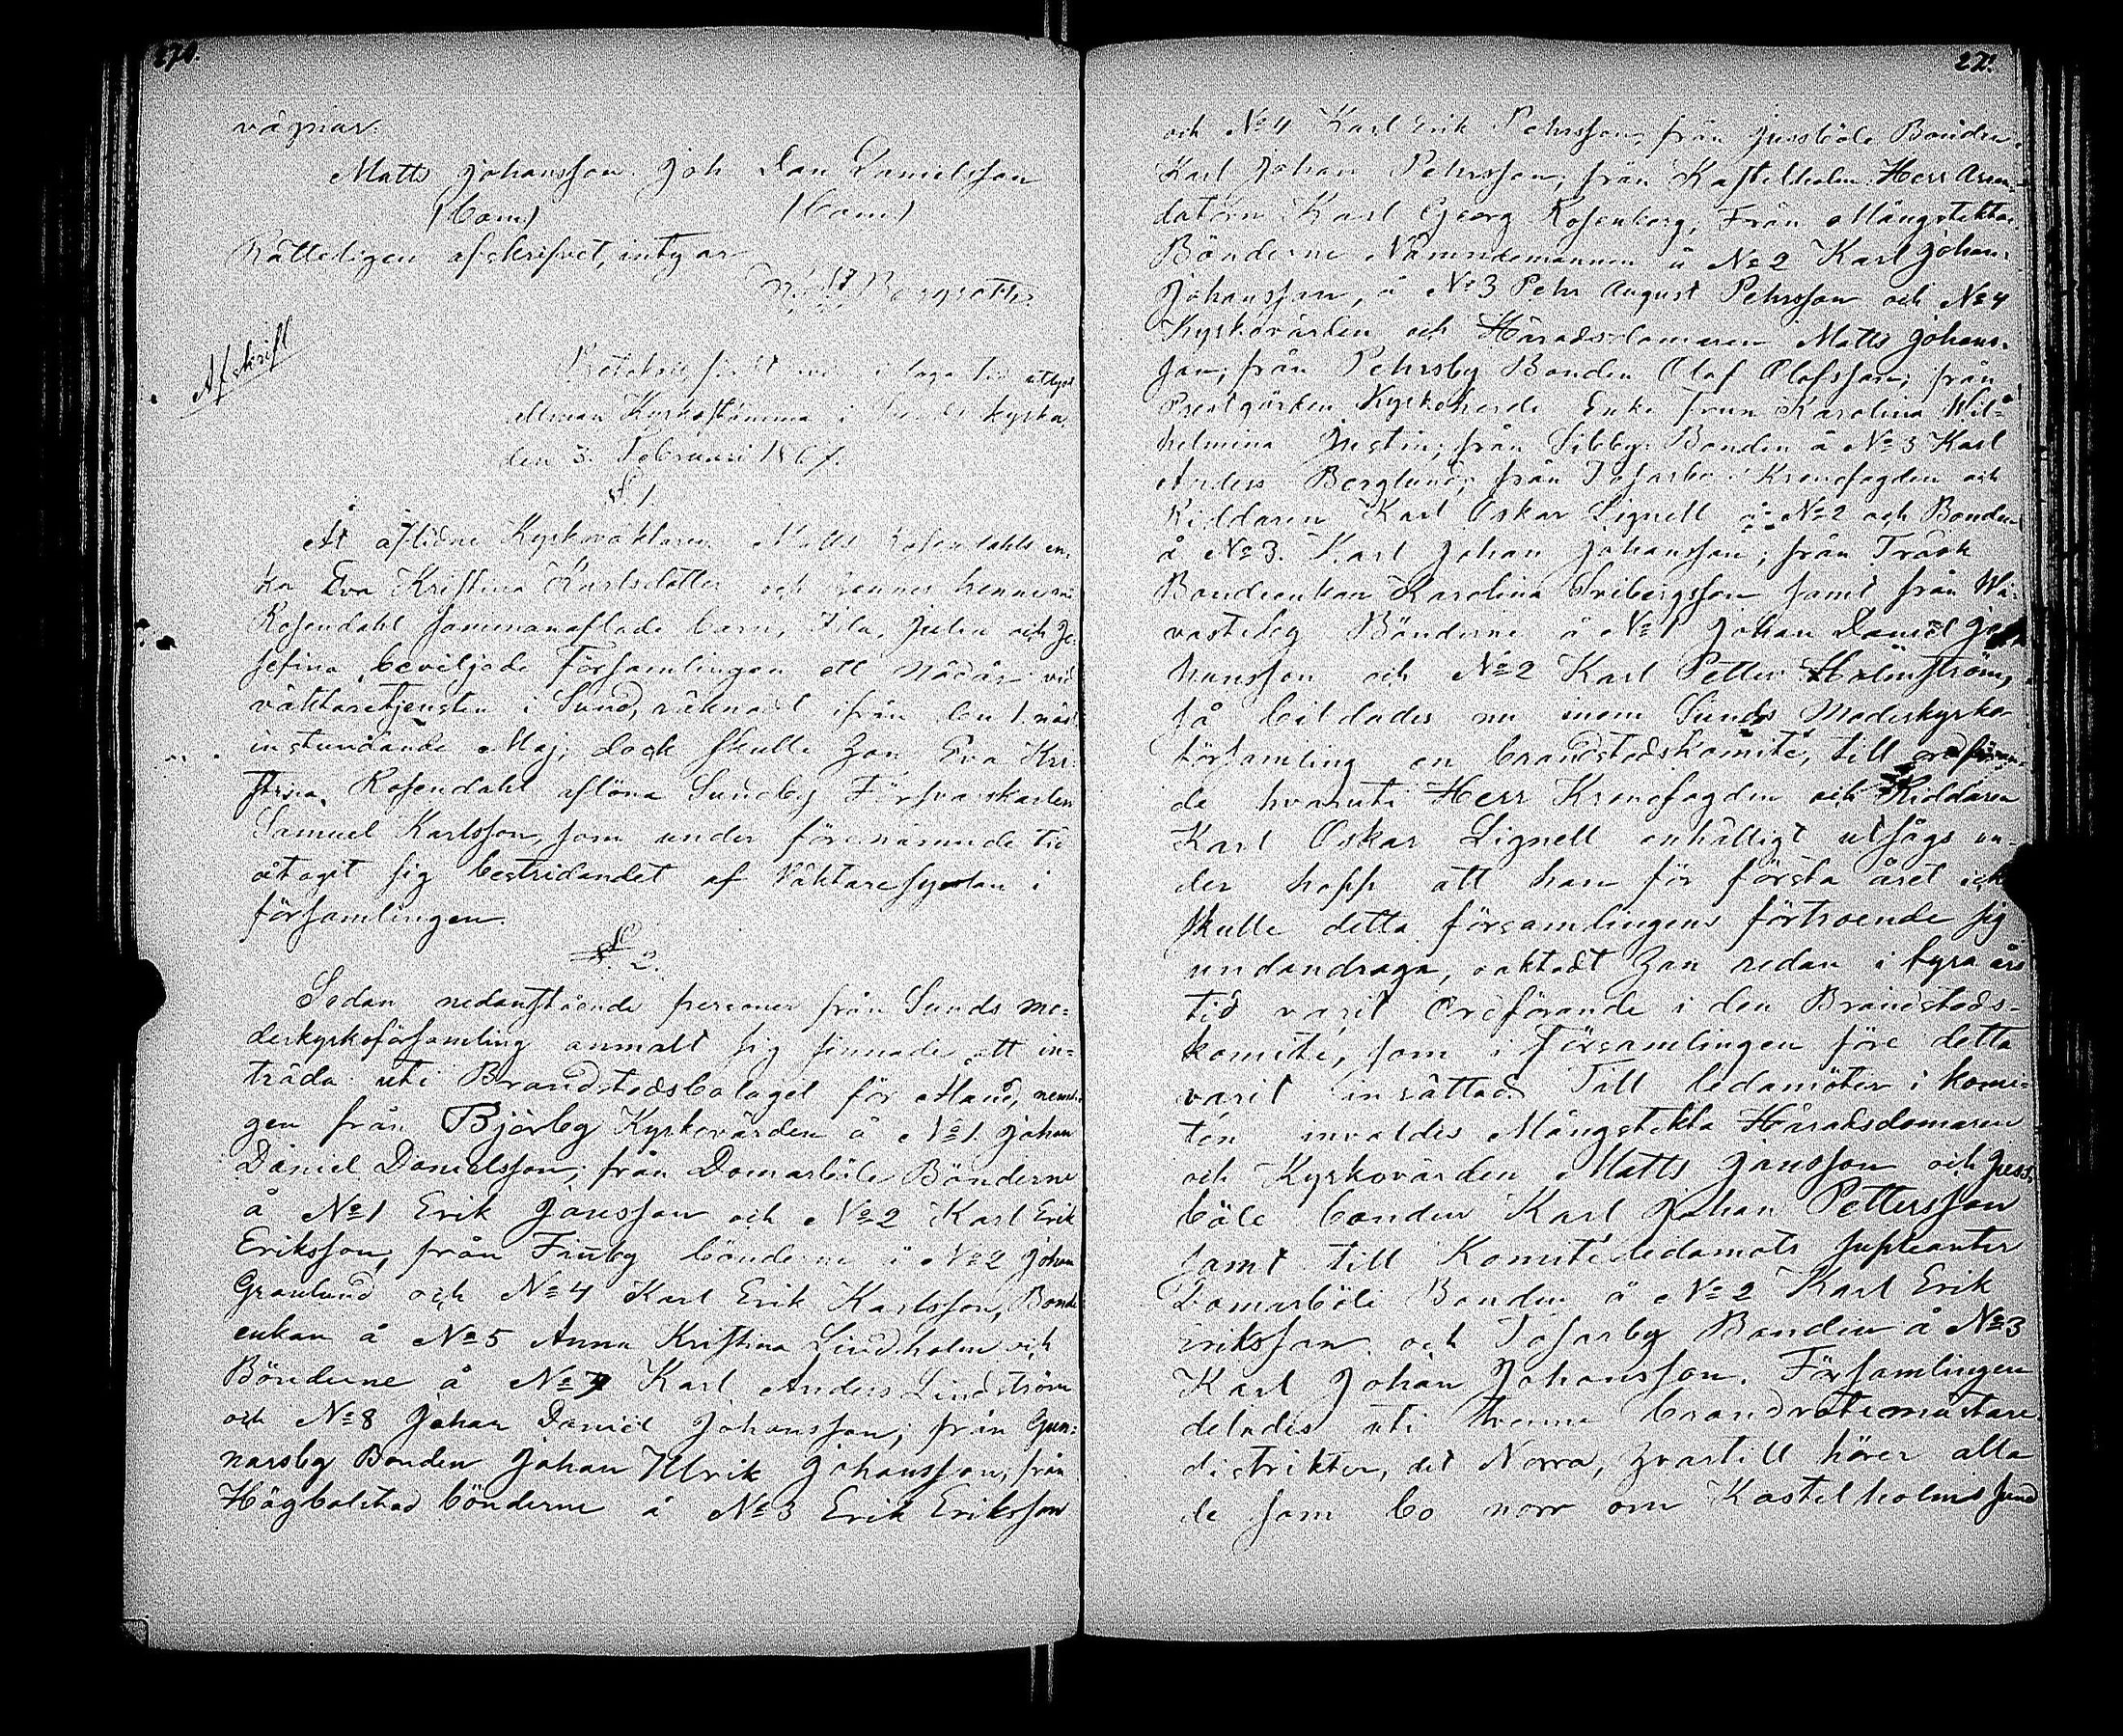 270.
vägnar:
Matts Johansson. Joh Dan Danielsson
(Bom.) (Bom.)
Rätteligen afskrifvet, intygar
Afskrift
Protokoll fördt vid i laga tid utlyst
allmän Kyrkostämma i Sunds kyrka,
den 3. Februari 1867.
§ 1.
Åt aflidne Kyrkoväktaren Matts Rosendahls en-
ka Eva Kristina Karlsdotter och hennes henne med
Rosendahl sammanaflade barn, Ida, Julia och Jo-
sefina, beviljade Församlingen ett nådår vid
väktaretjensten i Sund, räknadt ifrån den 1. näst
instundande Maj; dock skulle hon Eva Kri-
stina Rosendahl aflöna Sundby Försvarskarlen
Samuel Karlsson, som under förenämnde tid
åtagit sig bestridandet af Väktaresysslan i
församlingen.
§. 2.
Sedan nedanstående personer från Sunds mo-
derkyrkoförsamling anmält sig sinnade att in-
träda uti Brandstodsbolaget för Åland, nemli-
gen från Björby Kyrkovärden å №1. Johan
Daniel Danielsson; från Domarböle Bönderne
å №1 Erik Jansson och №2 Karl Erik
Eriksson, från Finby bönderne å №2 Johan
Granlund och №4 Karl Erik Karlsson, Bonde
enkan å №5 Anna Kristina Lindholm och
Bönderne å №7 Karl Anders Lindström
och №8 Johan Daniel Johansson; från Gun-
narsby Bonden Johan Ulrik Johansson; från
Högbolstad bönderne å №3 Erik Eriksson
271.
och №4 Karl Erik Pehrsson, från Jussböle Bonden
Karl Johan Pehrsson; från Kastelholm Herr Arren-
datorn Karl Georg Rosenberg; Från Mångstekta
Bönderne Nämndemannen å №2 Karl Johan
Johansson, å №3 Pehr August Pehrsson och №4
Kyrkovärden och Häradsdomaren Matts Johans-
son; från Pehrsby Bonden Olof Olofsson; från
Prestgården Kyrkoherde Enke Frun Karolina Wil-
helmina Justin; från Sibby Bonden å №3 Karl
Anders Berglund; från Tosarby Kronofogden och
Riddaren Karl Oskar Lignell å №2 och Bonden
å №3. Karl Johan Johansson; från Träsk
Bondeenkan Karolina Fribergsson samt från Wi-
vasteby Bönderne å №1 Johan Daniel Jo-
hansson och №2 Karl Petter Holmström,
så bildades nu inom Sunds Moderkyrko-
församling en brandstodskomité, till ordföran-
de hvaruti Herr Kronofogden och Riddaren
Karl Oskar Lignell enhälligt utsågs un-
der hopp att han för första året icke
skulle detta församlingens förtroende sig
undandraga, oaktadt han redan i fyra års
tid varit Ordförande i den Brandstods-
komité, som i Församlingen före detta
varit insättad. Till ledamöter i komi-
tén invaldes Mångstekta Häradsdomaren
och Kyrkovärden Matts Jansson och Juss-
böle bonden Karl Johan Pettersson
samt till Komitéledamots supleanter
Domarböle Bonden å №2 Karl Erik
Eriksson och Tosarby Bonden å №3
Karl Johan Johansson. Församlingen
delades uti tvenne brandrotemästare
distrikter, det Norra, hvartill hörer alla
de som bo norr om Kastelholms sund